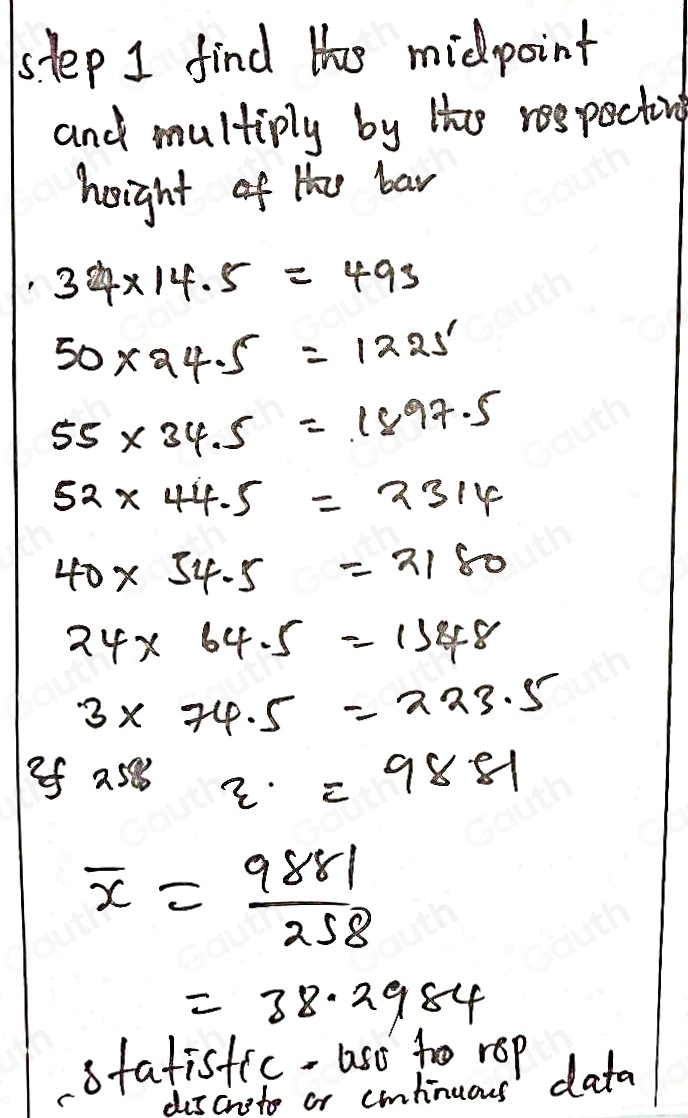 step 1 find the midpoint
and multiply by the respective
height of the bar
34 × 14.5 = 493
50 × 24.5 = 1225
55 × 34.5 = 1897.5
52 × 44.5 = 2314
40 × 54.5 = 2180
24 × 64.5 = 1548
3 × 74.5 = 223.5
Σf 258 Σ. = 9881
x̄ = 9881
258
= 38.2984
statistic - use to rep
discrete or continuous data